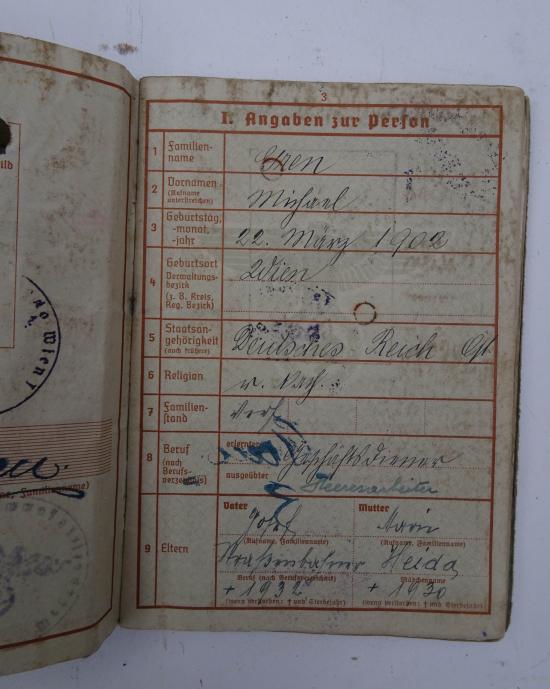 3
I. Angaben zur Person
1 Familien-
name
2 Vornamen Michael
(Rufname
unterstreichen)
3 Geburtstag, 22. März 1902
-monat,
-jahr
4 Geburtsort Wien
Verwaltungs-
bezirk
(z. B. Kreis,
Reg. Bezirk)
5 Staatsan- Deutsches Reich
gehörigkeit
(auch frühere)
6 Religion r. kath.
7 Familien- verh
stand
8 Beruf erlernter Geschäftsdiener
(nach
Berufs- ausgeübter Heeresarbeiter
verzeichnis)
9 Eltern
Vater Mutter
Josef Marie
(Rufname, Familienname) (Rufname, Familienname)
Straßenbahner Heida
Beruf (nach Berufsverzeichnis) Mädchenname
+ 1932 + 1930
(wenn verstorben: † und Sterbejahr) (wenn verstorben: † und Sterbejahr)
ild
do Wien I
Familienname)